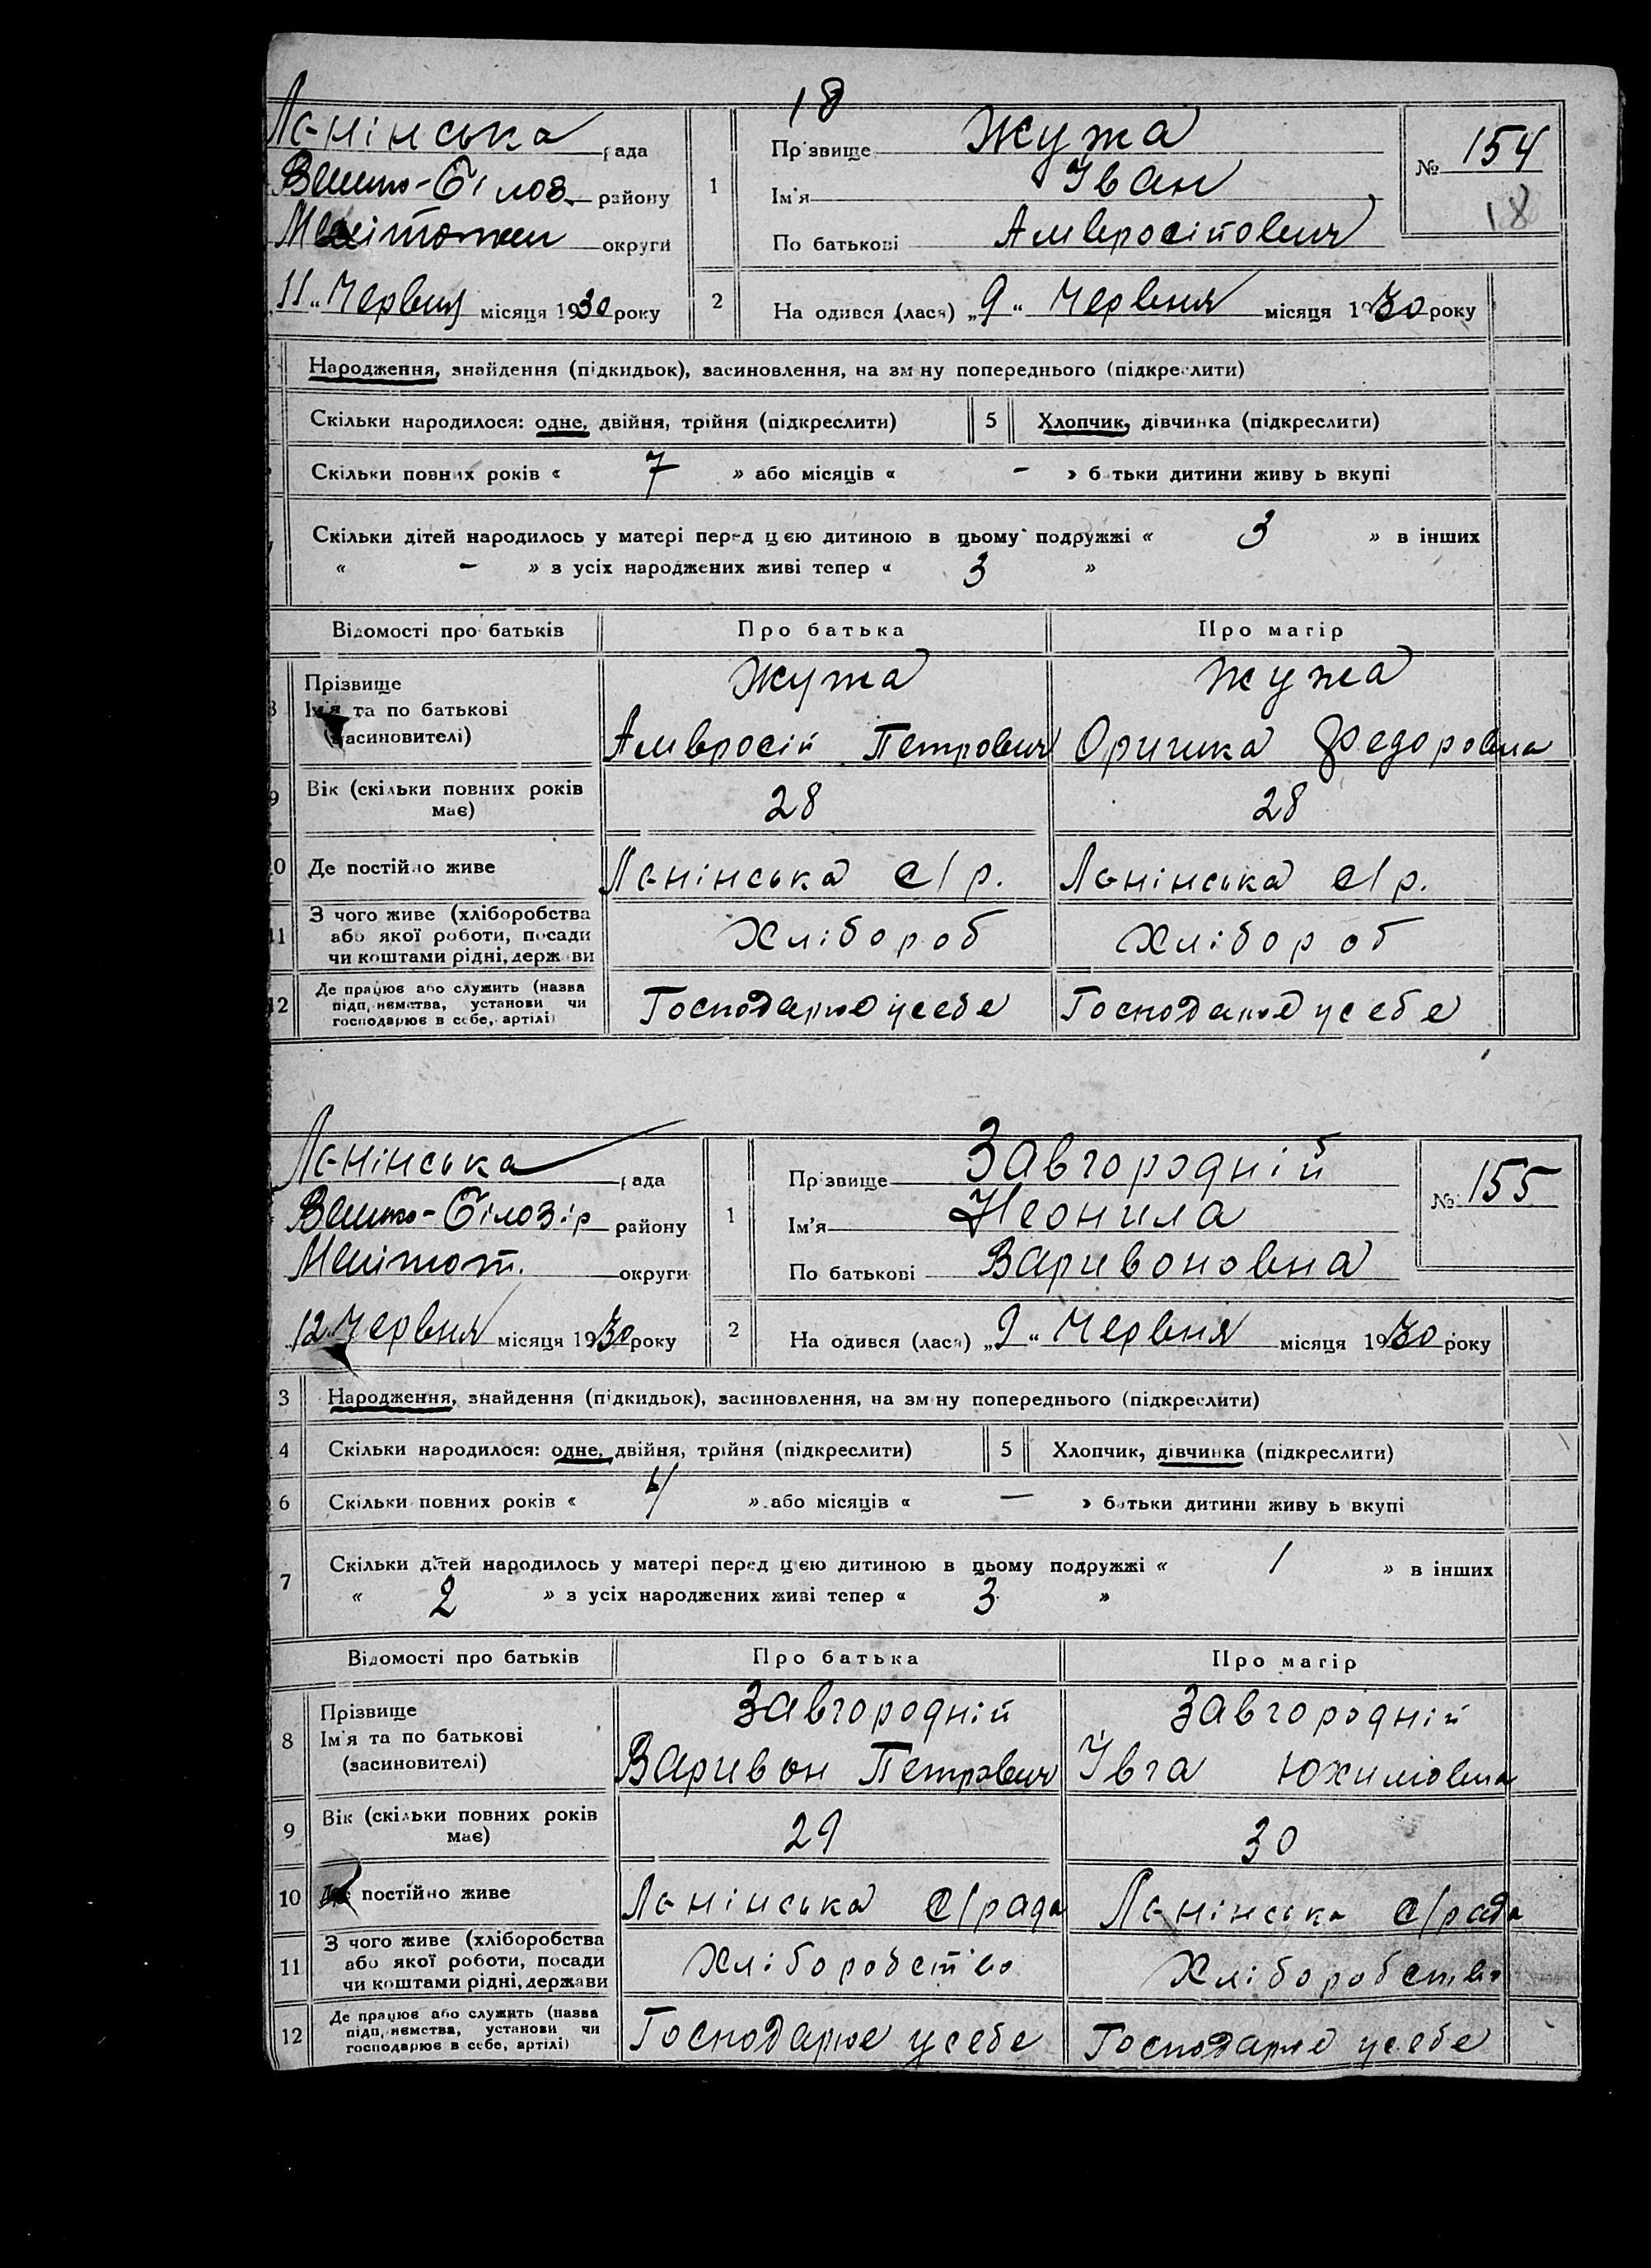 18
Ленінська рада
Велико-Білоз. району
Мелітопол округи
11 „ Червня місяця 1930 року
1
Прізвище Жужа
Ім'я Іван
По батькові Амвросійович
№ 154
18
2
Народився (лася) „9“ Червня місяця 1930 року
Народження, знайдення (підкидьок), засиновлення, на зміну попереднього (підкреслити)
Скільки народилося: одне, двійня, трійня (підкреслити) 5 Хлопчик, дівчинка (підкреслити)
Скільки повних років « 7 » або місяців « - » батьки дитини живуть вкупі
Скільки дітей народилось у матері перед цією дитиною в цьому подружжі « 3 » в інших
« - » з усіх народжених живі тепер « 3 »
Відомості про батьків Про батька Про матір
8 Прізвище Жужа Жужа
Ім'я та по батькові
(засиновителі) Амвросій Петрович Оришка Федоровна
9 Вік (скільки повних років має) 28 28
10 Де постійно живе Ленінська с/р. Ленінська с/р.
11 З чого живе (хліборобства
або якої роботи, посади
чи коштами рідні, держави Хлібороб Хлібороб
12 Де працює або служить (назва
підприємства, установи чи
господарює в себе, артілі) Господарює у себе Господарює у себе
Ленінська рада
Велико-Білозір району
Мелітоп. округи
12 Червня місяця 1930 року
1
Прізвище Завгородній
Ім'я Неонила
По батькові Варивоновна
№ 155
2
Народився (лася) „9“ Червня місяця 1930 року
3 Народження, знайдення (підкидьок), засиновлення, на зміну попереднього (підкреслити)
4 Скільки народилося: одне, двійня, трійня (підкреслити) 5 Хлопчик, дівчинка (підкреслити)
6 Скільки повних років « 4 » або місяців « — » батьки дитини живуть вкупі
7 Скільки дітей народилось у матері перед цією дитиною в цьому подружжі « 1 » в інших
« 2 » з усіх народжених живі тепер « 3 »
Відомості про батьків Про батька Про матір
8 Прізвище Завгородній Завгородній
Ім'я та по батькові
(засиновителі) Варивон Петрович Івга Юхимовна
9 Вік (скільки повних років має) 29 30
10 Де постійно живе Ленінська с/рада Ленінська с/рада
11 З чого живе (хліборобства
або якої роботи, посади
чи коштами рідні, держави Хліборобство Хліборобство
12 Де працює або служить (назва
підприємства, установи чи
господарює в себе, артілі) Господарює у себе Господарює у себе